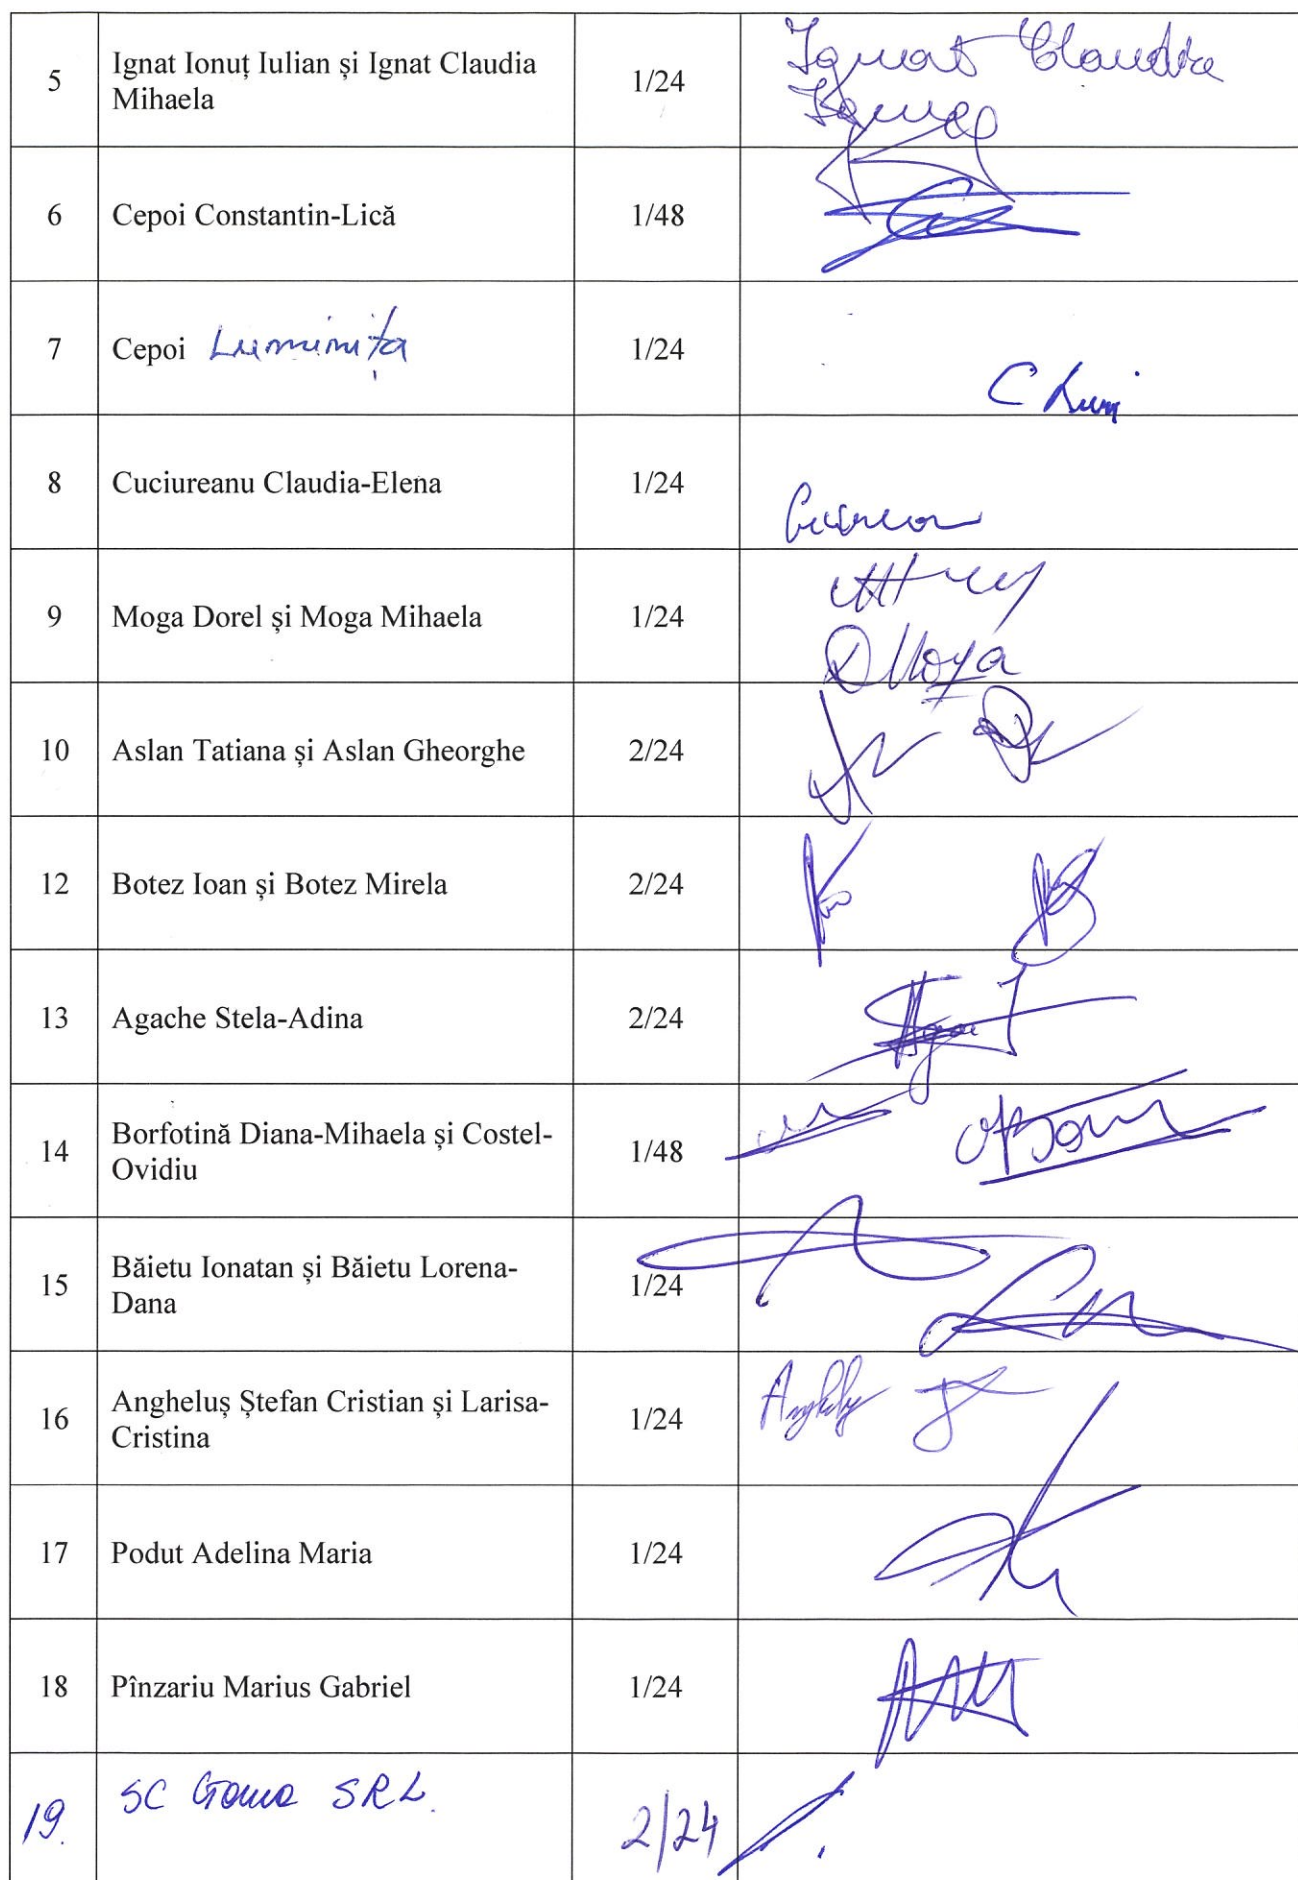 5 Ignat Ionuț Iulian și Ignat Claudia 1/24 Ignat Claudia
Mihaela
6 Cepoi Constantin-Lică 1/48
7 Cepoi Luminița 1/24 C Lumi
8 Cuciureanu Claudia-Elena 1/24
9 Moga Dorel și Moga Mihaela 1/24
D Moga
10 Aslan Tatiana și Aslan Gheorghe 2/24
12 Botez Ioan și Botez Mirela 2/24
13 Agache Stela-Adina 2/24
14 Borfotină Diana-Mihaela și Costel- 1/48
Ovidiu
15 Băietu Ionatan și Băietu Lorena- 1/24
Dana
16 Angheluș Ștefan Cristian și Larisa- 1/24
Cristina
17 Podut Adelina Maria 1/24
18 Pînzariu Marius Gabriel 1/24
19. SC SRL. 2/24